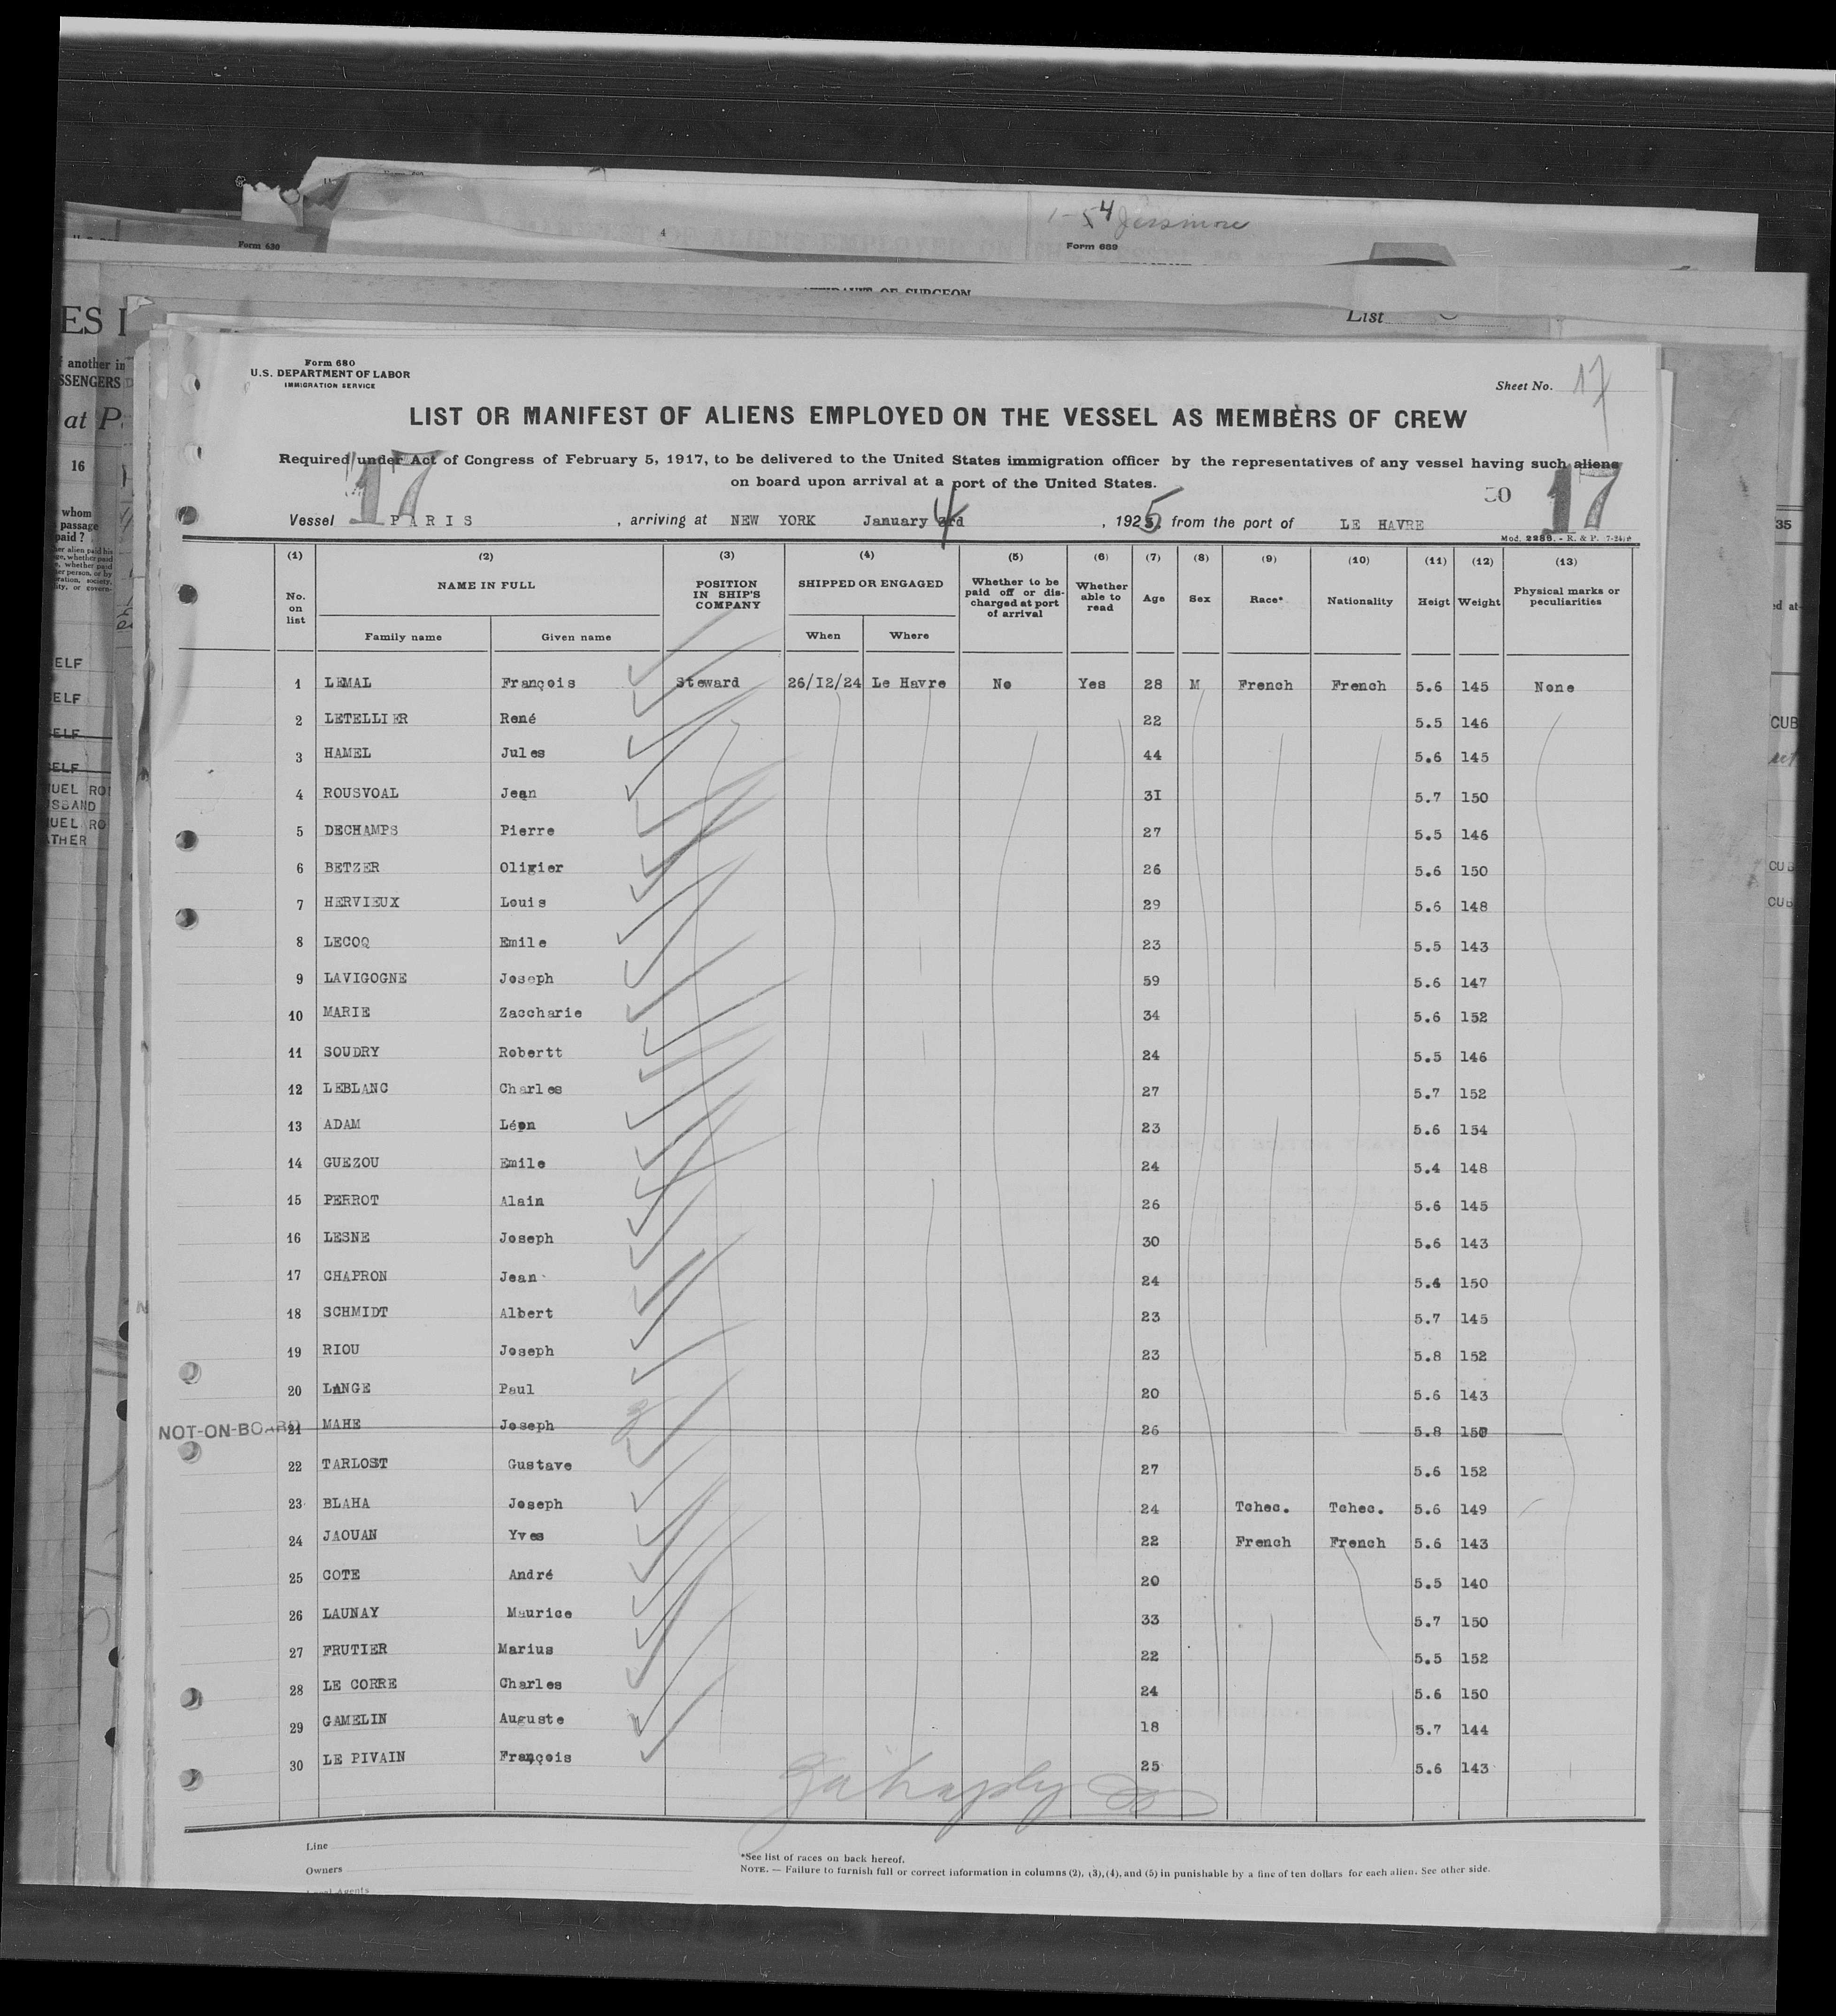 1-54 Jessmore
Form 630
4
Form 689
AFFIDAVIT OF SURGEON
List
ES I
f another in
SSENGERS
at P
16
whom
passage
paid?
ELF
ELF
ELF
ELF
UEL RO
SBAND
UEL RO
ATHER
35
ed at
CUB
CUB
CUB
Form 680
U.S. DEPARTMENT OF LABOR
IMMIGRATION SERVICE
Sheet No. 17
LIST OR MANIFEST OF ALIENS EMPLOYED ON THE VESSEL AS MEMBERS OF CREW
Required under Act of Congress of February 5, 1917, to be delivered to the United States immigration officer by the representatives of any vessel having such aliens
on board upon arrival at a port of the United States.
17 30 17
Vessel PARIS , arriving at NEW YORK January 4 3rd , 1925 from the port of LE HAVRE
Mod. 2286. - R. & P. 7-24
(1) (2) (3) (4) (5) (6) (7) (8) (9) (10) (11) (12) (13)
No. on list NAME IN FULL POSITION IN SHIP'S COMPANY SHIPPED OR ENGAGED Whether to be paid off or discharged at port of arrival Whether able to read Age Sex Race* Nationality Heigt Weight Physical marks or peculiarities
Family name Given name When Where
1 LEMAL François Steward 26/I2/24 Le Havre No Yes 28 M French French 5.6 145 None
2 LETELLIER René 22 5.5 146
3 HAMEL Jules 44 5.6 145
4 ROUSVOAL Jean 3I 5.7 150
5 DECHAMPS Pierre 27 5.5 146
6 BETZER Oligier 26 5.6 150
7 HERVIEUX Louis 29 5.6 148
8 LECOQ Emile 23 5.5 143
9 LAVIGOGNE Joseph 59 5.6 147
10 MARIE Zaccharie 34 5.6 152
11 SOUDRY Robertt 24 5.5 146
12 LEBLANC Charles 27 5.7 152
13 ADAM Léon 23 5.6 154
14 GUEZOU Emile 24 5.4 148
15 PERROT Alain 26 5.6 145
16 LESNE Joseph 30 5.6 143
17 CHAPRON Jean 24 5.4 150
18 SCHMIDT Albert 23 5.7 145
19 RIOU Joseph 23 5.8 152
20 LANGE Paul 20 5.6 143
NOT-ON-BOARD 21 MAHE Joseph 26 5.8 150
22 TARLOST Gustave 27 5.6 152
23 BLAHA Joseph 24 Tchec. Tchec. 5.6 149
24 JAOUAN Yves 22 French French 5.6 143
25 COTE André 20 5.5 140
26 LAUNAY Maurice 33 5.7 150
27 FRUTIER Marius 22 5.5 152
28 LE CORRE Charles 24 5.6 150
29 GAMELIN Auguste 18 5.7 144
30 LE PIVAIN François 25 5.6 143
Line
Owners
Local Agents
*See list of races on back hereof.
NOTE. — Failure to furnish full or correct information in columns (2), (3), (4), and (5) in punishable by a fine of ten dollars for each alien. See other side.